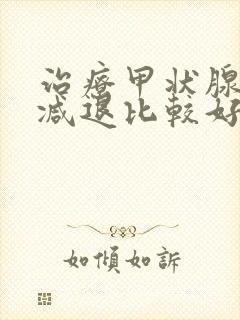 治療甲状腺
減退比較好
如傾如訴